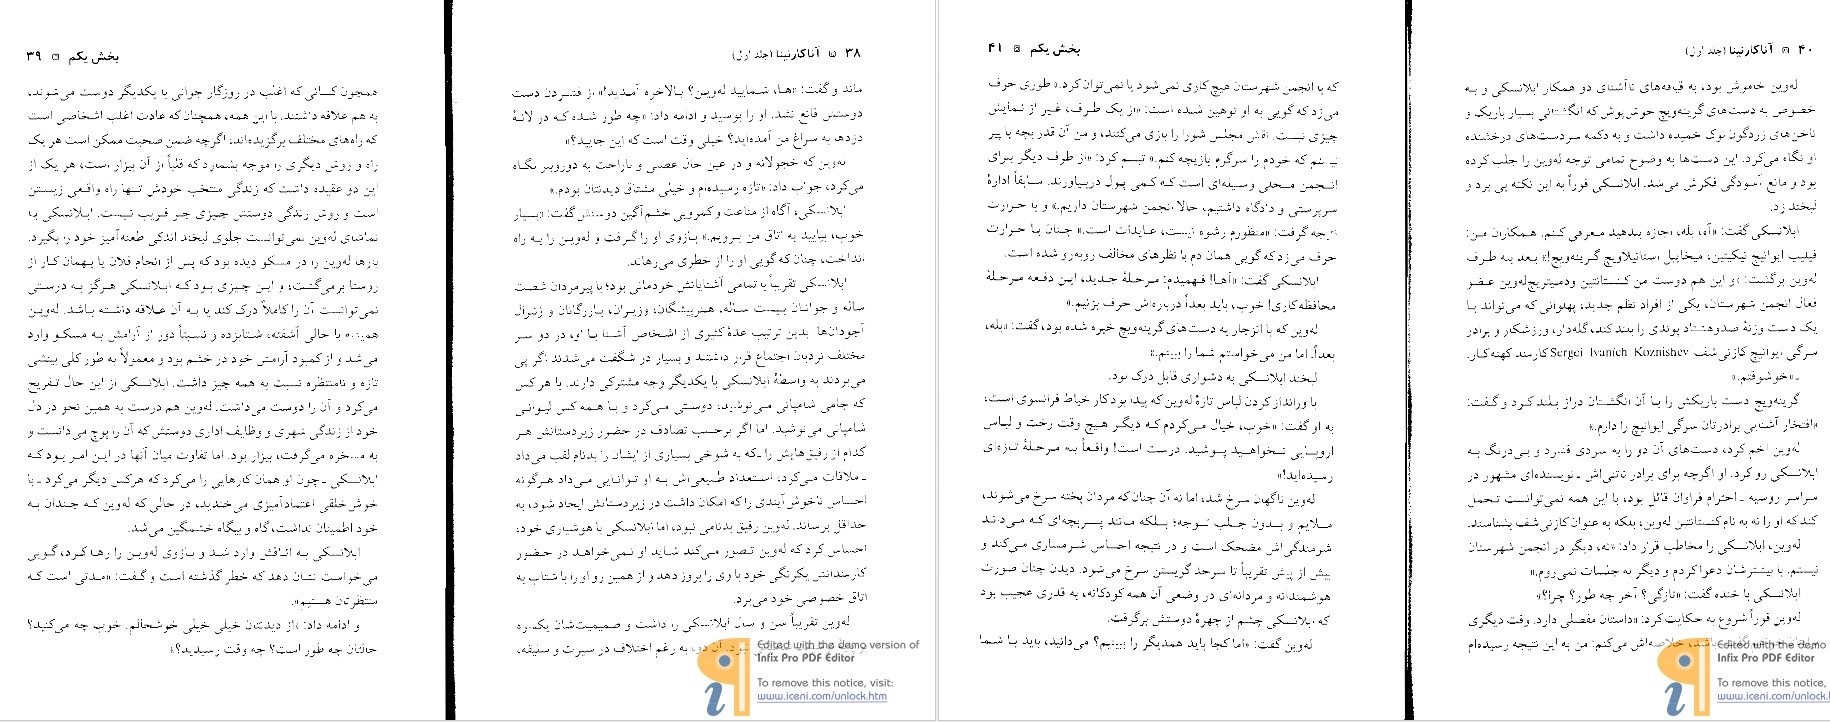 ۳۸ آناکارنینا (جلد اول)
ماند و گفت: «ها، شمایید له‌وین؟ بالاخره آمدید!» از فشردن دست
دوستش قانع نشد. او را بوسید و ادامه داد: «چه طور شده که در لانهٔ
دزدها به سراغ من آمده‌اید؟ خیلی وقت است که این جایید؟»
له‌وین که خجولانه و در عین حال عصبی و ناراحت به دوروبر نگاه
می‌کرد، جواب داد: «تازه رسیده‌ام و خیلی مشتاق دیدنتان بودم.»
ابلانسکی، آگاه از مناعت و کمرویی خشم‌آگین دوستش گفت: «بسیار
خوب، بیایید به اتاق من برویم.» بازوی او را گرفت و له‌وین را به راه
انداخت، چنان که گویی او را از خطری می‌رهاند.
ابلانسکی تقریباً با تمامی آشنایانش خودمانی بود؛ با پیرمردان شصت
ساله و جوانان بیست ساله، هنرپیشگان، وزیران، بازرگانان و ژنرال
آجودان‌ها. بدین ترتیب عدهٔ کثیری از اشخاص آشنا با او، در دو سر
مختلف نردبان اجتماع قرار داشتند و بسیار در شگفت می‌شدند اگر پی
می‌بردند به واسطهٔ ابلانسکی با یکدیگر وجه مشترکی دارند. با هر کس
که جامی شامپانی می‌نوشید، دوستی می‌کرد و با همه کس لیوانی
شامپانی می‌نوشید. اما اگر برحسب تصادف در حضور زیردستانش هر
کدام از رفیق‌هایش را ـ که به شوخی بسیاری از ایشان را بدنام لقب می‌داد
ـ ملاقات می‌کرد، استعداد طبیعی‌اش به او توانایی می‌داد هرگونه
احساس ناخوش‌آیندی را که امکان داشت در زیردستانش ایجاد شود، به
حداقل برساند. له‌وین رفیق بدنامی نبود، اما ابلانسکی با هوشیاری خود،
احساس کرد که له‌وین تصور می‌کند شاید او نمی‌خواهد در حضور
کارمندانش یکرنگی خود با وی را بروز دهد و از همین رو او را با شتاب به
اتاق خصوصی خود می‌برد.
له‌وین تقریباً سن و سال ابلانسکی را داشت و صمیمیت‌شان یکسره
نبود. آن دو، به رغم اختلاف در سیرت و سلیقه،
Edited with the demo version of
Infix Pro PDF Editor
To remove this notice, visit:
www.iceni.com/unlock.htm
بخش یکم ۳۹
همچون کسانی که اغلب در روزگار جوانی با یکدیگر دوست می‌شوند،
به هم علاقه داشتند. با این همه، همچنان که عادت اغلب اشخاصی است
که راه‌های مختلف برگزیده‌اند؛ اگرچه ضمن صحبت ممکن است هر یک
راه و روش دیگری را موجه بشمارد که قلباً از آن بیزار است، هر یک از
این دو عقیده داشت که زندگی منتخب خودش تنها راه واقعی زیستن
است و روش زندگی دوستش چیزی جز فریب نیست. ابلانسکی به
تماشای له‌وین نمی‌توانست جلوی لبخند اندکی طعنه‌آمیز خود را بگیرد.
بارها له‌وین را در مسکو دیده بود که پس از انجام فلان یا بهمان کار از
روستا برمی‌گشت، و این چیزی بود که ابلانسکی هرگز به درستی
نمی‌توانست آن را کاملاً درک کند یا به آن علاقه داشته باشد. له‌وین
همیشه با حالی آشفته، شتابزده و نسبتاً دور از آرامش به مسکو وارد
می‌شد و از کمبود آرامش خود در خشم بود و معمولاً به طور کلی بینشی
تازه و نامنتظره نسبت به همه چیز داشت. ابلانسکی از این حال تفریح
می‌کرد و آن را دوست می‌داشت. له‌وین هم درست به همین نحو در دل
خود از زندگی شهری و وظایف اداری دوستش که آن را پوچ می‌دانست و
به مسخره می‌گرفت، بیزار بود. اما تفاوت میان آنها در این امر بود که
ابلانسکی ـ چون او همان کارهایی را می‌کرد که هرکس دیگر می‌کرد ـ با
خوش خلقی اعتمادآمیزی می‌خندید، در حالی که له‌وین که چندان به
خود اطمینان نداشت، گاه و بیگاه خشمگین می‌شد.
ابلانسکی به اتاقش وارد شد و بازوی له‌وین را رها کرد، گویی
می‌خواست نشان دهد که خطر گذشته است و گفت: «مدتی است که
منتظرتان هستیم».
و ادامه داد: «از دیدنتان خیلی خیلی خوشحالم. خوب چه می‌کنید؟
حالتان چه طور است؟ چه وقت رسیدید؟»
۴۰ آناکارنینا (جلد اول)
له‌وین خاموش بود، به قیافه‌های ناآشنای دو همکار ابلانسکی و به
خصوص به دست‌های گرینه‌ویچ خوش‌پوش که انگشتانی بسیار باریک و
ناخن‌های زردگون نوک خمیده داشت و به دکمه سردست‌های درخشنده
او نگاه می‌کرد. این دست‌ها به وضوح تمامی توجه له‌وین را جلب کرده
بود و مانع آسودگی فکرش می‌شد. ابلانسکی فوراً به این نکته پی برد و
لبخند زد.
ابلانسکی گفت: «آه، بله، اجازه بدهید معرفی کنم. همکاران من:
فیلیپ ایوانیچ نیکیتین، میخاییل استانیلاویچ گرینه‌ویچ!» بعد به طرف
له‌وین برگشت: «و این هم دوست من کنستانتین ودمیتریچ‌له‌وین عضو
فعال انجمن شهرستان، یکی از افراد نظم جدید، پهلوانی که می‌تواند با
یک دست وزنهٔ صدوهشتاد پوندی را بلند کند، گله‌دار، ورزشکار و برادر
سرگی ایوانیچ کازنی‌شف Sergei Ivanich Koznishev کارمند کهنه‌کار.
ـ «خوشوقتم.»
گرینه‌ویچ دست باریکش را با آن انگشتان دراز بلند کرد و گفت:
«افتخار آشنایی برادرتان سرگی ایوانیچ را دارم.»
له‌وین اخم کرد، دست‌های آن دو را به سردی فشرد و بی‌درنگ به
ابلانسکی رو کرد. او اگرچه برای برادر ناتنی‌اش ـ نویسنده‌ای مشهور در
سراسر روسیه ـ احترام فراوان قائل بود، با این همه نمی‌توانست تحمل
کند که او را نه به نام کنستانتین له‌وین، بلکه به عنوان کازنی‌شف بشناسند.
له‌وین، ابلانسکی را مخاطب قرار داد: «نه، دیگر در انجمن شهرستان
نیستم. با بیشترشان دعوا کردم و دیگر به جلسات نمی‌روم.»
ابلانسکی با خنده گفت: «تازگی؟ آخر چه طور؟ چرا؟»
له‌وین فوراً شروع به حکایت کرد: «داستان مفصلی دارد. وقت دیگری
خلاصه‌اش می‌کنم: من به این نتیجه رسیده‌ام
Edited with the demo
Infix Pro PDF Editor
To remove this notice,
www.iceni.com/unlock.
بخش یکم ۴۱
که با انجمن شهرستان هیچ کاری نمی‌شود یا نمی‌توان کرد.» طوری حرف
می‌زد که گویی به او توهین شده است: «از یک طرف، غیر از نمایش
چیزی نیست. نقش مجلس شورا را بازی می‌کنند، و من آن قدر بچه یا پیر
نیستم که خودم را سرگرم بازیچه کنم.» تبسم کرد: «از طرف دیگر برای
انجمن محلی وسیله‌ای است که کمی پول دربیاورند. سابقاً ادارهٔ
سرپرستی و دادگاه داشتیم، حالا انجمن شهرستان داریم.» و با حرارت
نتیجه گرفت: «منظورم رشوه نیست، عایدات است.» چنان با حرارت
حرف می‌زد که گویی همان دم با نظرهای مخالف روبه‌رو شده است.
ابلانسکی گفت: «آها! فهمیدم: مرحلهٔ جدید، این دفعه مرحلهٔ
محافظه‌کاری! خوب، باید بعداً درباره‌اش حرف بزنیم.»
له‌وین که با انزجار به دست‌های گرینه‌ویچ خیره شده بود، گفت: «بله،
بعداً. اما من می‌خواستم شما را ببینم.»
لبخند ابلانسکی به دشواری قابل درک بود.
با ورانداز کردن لباس تازهٔ له‌وین که پیدا بود کار خیاط فرانسوی است،
به او گفت: «خوب، خیال می‌کردم که دیگر هیچ وقت رخت و لباس
اروپایی نخواهید پوشید. درست است! واقعاً به مرحلهٔ تازه‌ای
رسیده‌اید!»
له‌وین ناگهان سرخ شد، اما نه آن چنان که مردان پخته سرخ می‌شوند،
ملایم و بدون جلب توجه؛ بلکه مانند پسربچه‌ای که می‌داند
شرمندگی‌اش مضحک است و در نتیجه احساس شرمساری می‌کند و
بیش از پیش تقریباً تا سرحد گریستن سرخ می‌شود. دیدن چنان صورت
هوشمندانه و مردانه‌ای در وضعی آن همه کودکانه، به قدری عجیب بود
که ابلانسکی چشم از چهرهٔ دوستش برگرفت.
له‌وین گفت: «اما کجا باید همدیگر را ببینیم؟ می‌دانید، باید با شما